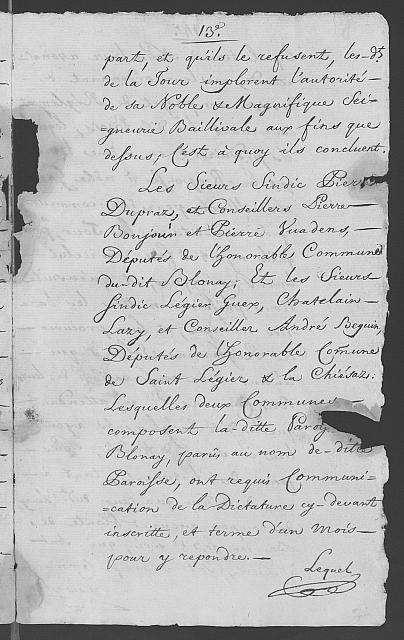 13.e
part, et qu'ils le refusent, les-dts
de la Tour implorent l'autorité-
de sa Noble & Magnifique Sei-
gneurie Baillivale aux fins que
dessus, C'est à quoy ils concluent.
Les Sieurs Sindic Pierre
Dupraz, et Conseillers Pierre-
Bonjour et Pierre Vuadens, -
Députés de l'Honorable Commune
du-dit Blonay; Et les Sieurs-
Sindic Légier Guex, Chatelain-
Lazy, et Conseiller André Beguin,
Députés de l'Honorable Comune
de Saint Légier & la Chiésaz:
Lesquelles deux Communes -
composent la-ditte Paroi
Blonay, parûs au nom de-ditte
Paroisse, ont requis Communi-
=cation de la Dictature cy-devant
inscritte, et terme d'un Mois-
pour y repondre. -
Lequel